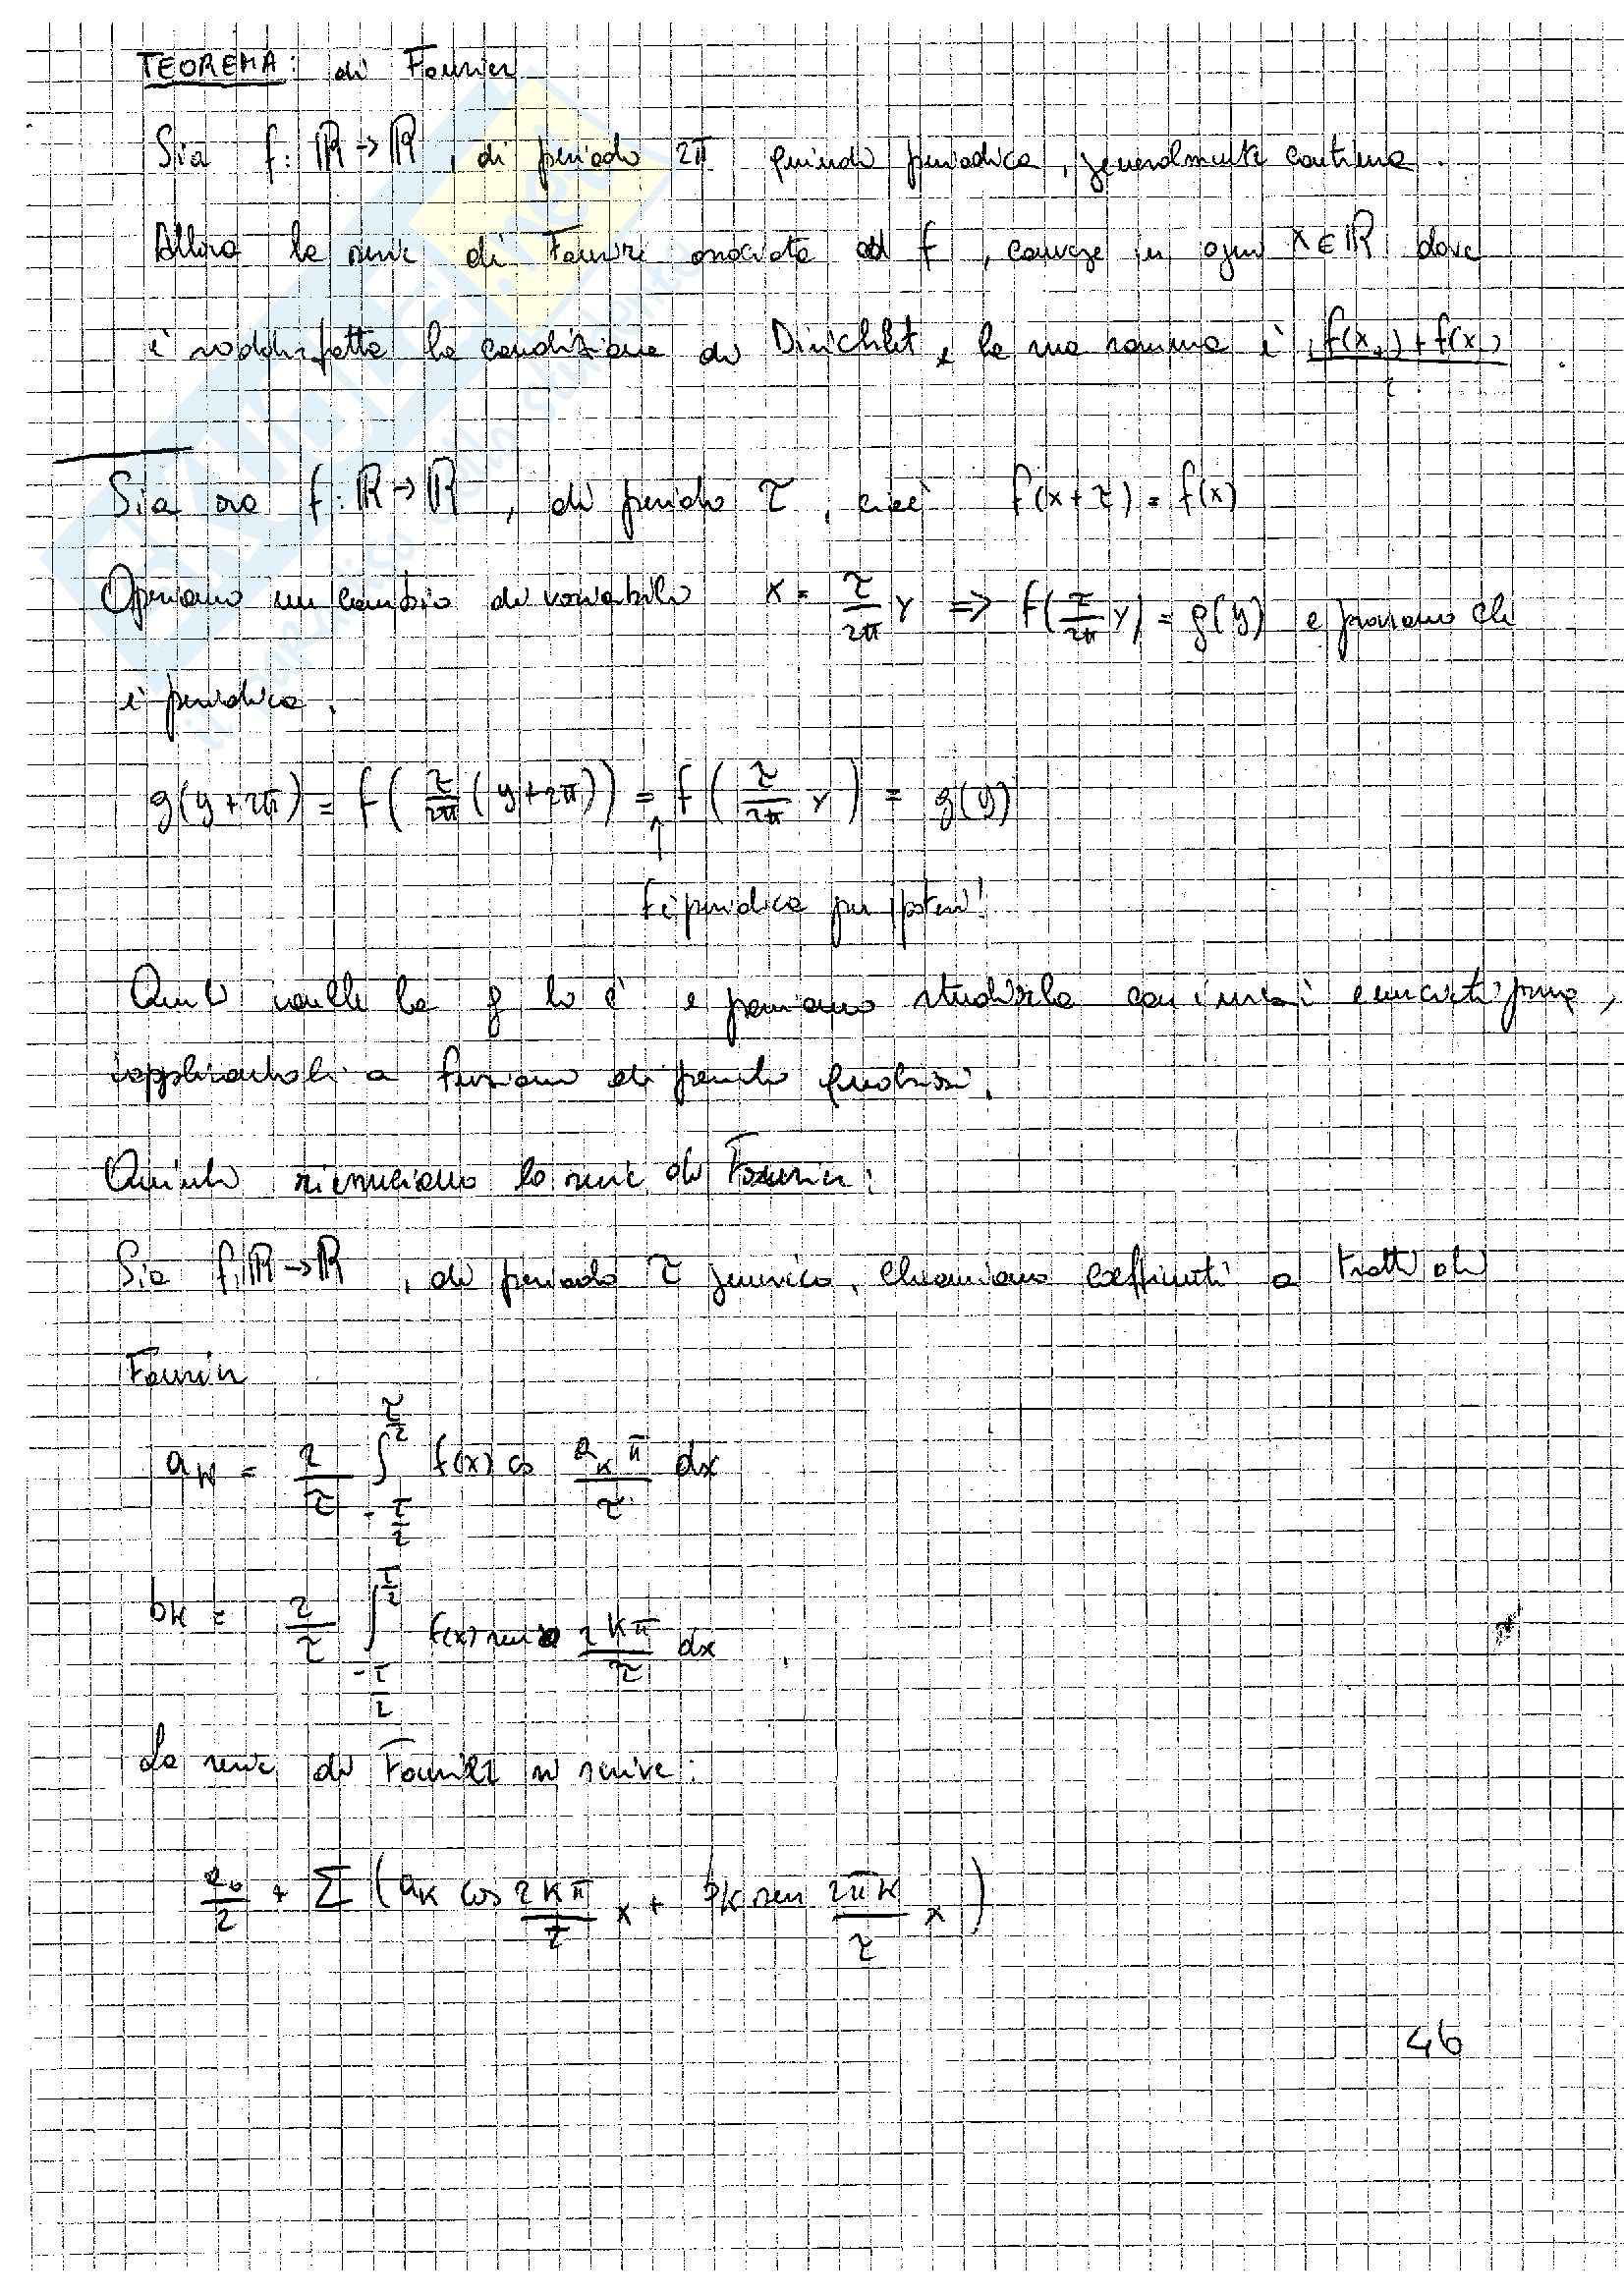 TEOREMA: di Fourier
Sia f: ℝ → ℝ, di periodo 2π quindi periodica, generalmente continua.
Allora la serie di Fourier associata ad f, converge in ogni x ∈ ℝ dove
è soddisfatta la condizione di Dirichlet e la sua somma è (f(x₊) + f(x₋))/2.
Sia ora f: ℝ → ℝ, di periodo τ, cioè f(x+τ) = f(x)
Operiamo un cambio di variabile x = τ/2π y ⇒ f(τ/2π y) = g(y) e proviamo che
è periodica.
g(y+2π) = f(τ/2π (y+2π)) = f(τ/2π y) = g(y)
↑
f è periodica per ipotesi!
Quindi anche la g lo è e possiamo studiarla con i mezzi enunciati prima,
applicabili a funzioni di periodo qualsiasi.
Quindi rienunciamo la serie di Fourier:
Sia f: ℝ → ℝ, di periodo τ generico, chiamiamo coefficienti a tratti di
Fourier
aₖ = 2/τ ∫_{-τ/2}^{τ/2} f(x) cos 2ₖπ/τ dx
bₖ = 2/τ ∫_{-τ/2}^{τ/2} f(x) sen 2kπ/τ dx
La serie di Fourier si scrive:
a₀/2 + Σ (aₖ cos 2kπ/τ x + bₖ sen 2πk/τ x)
46